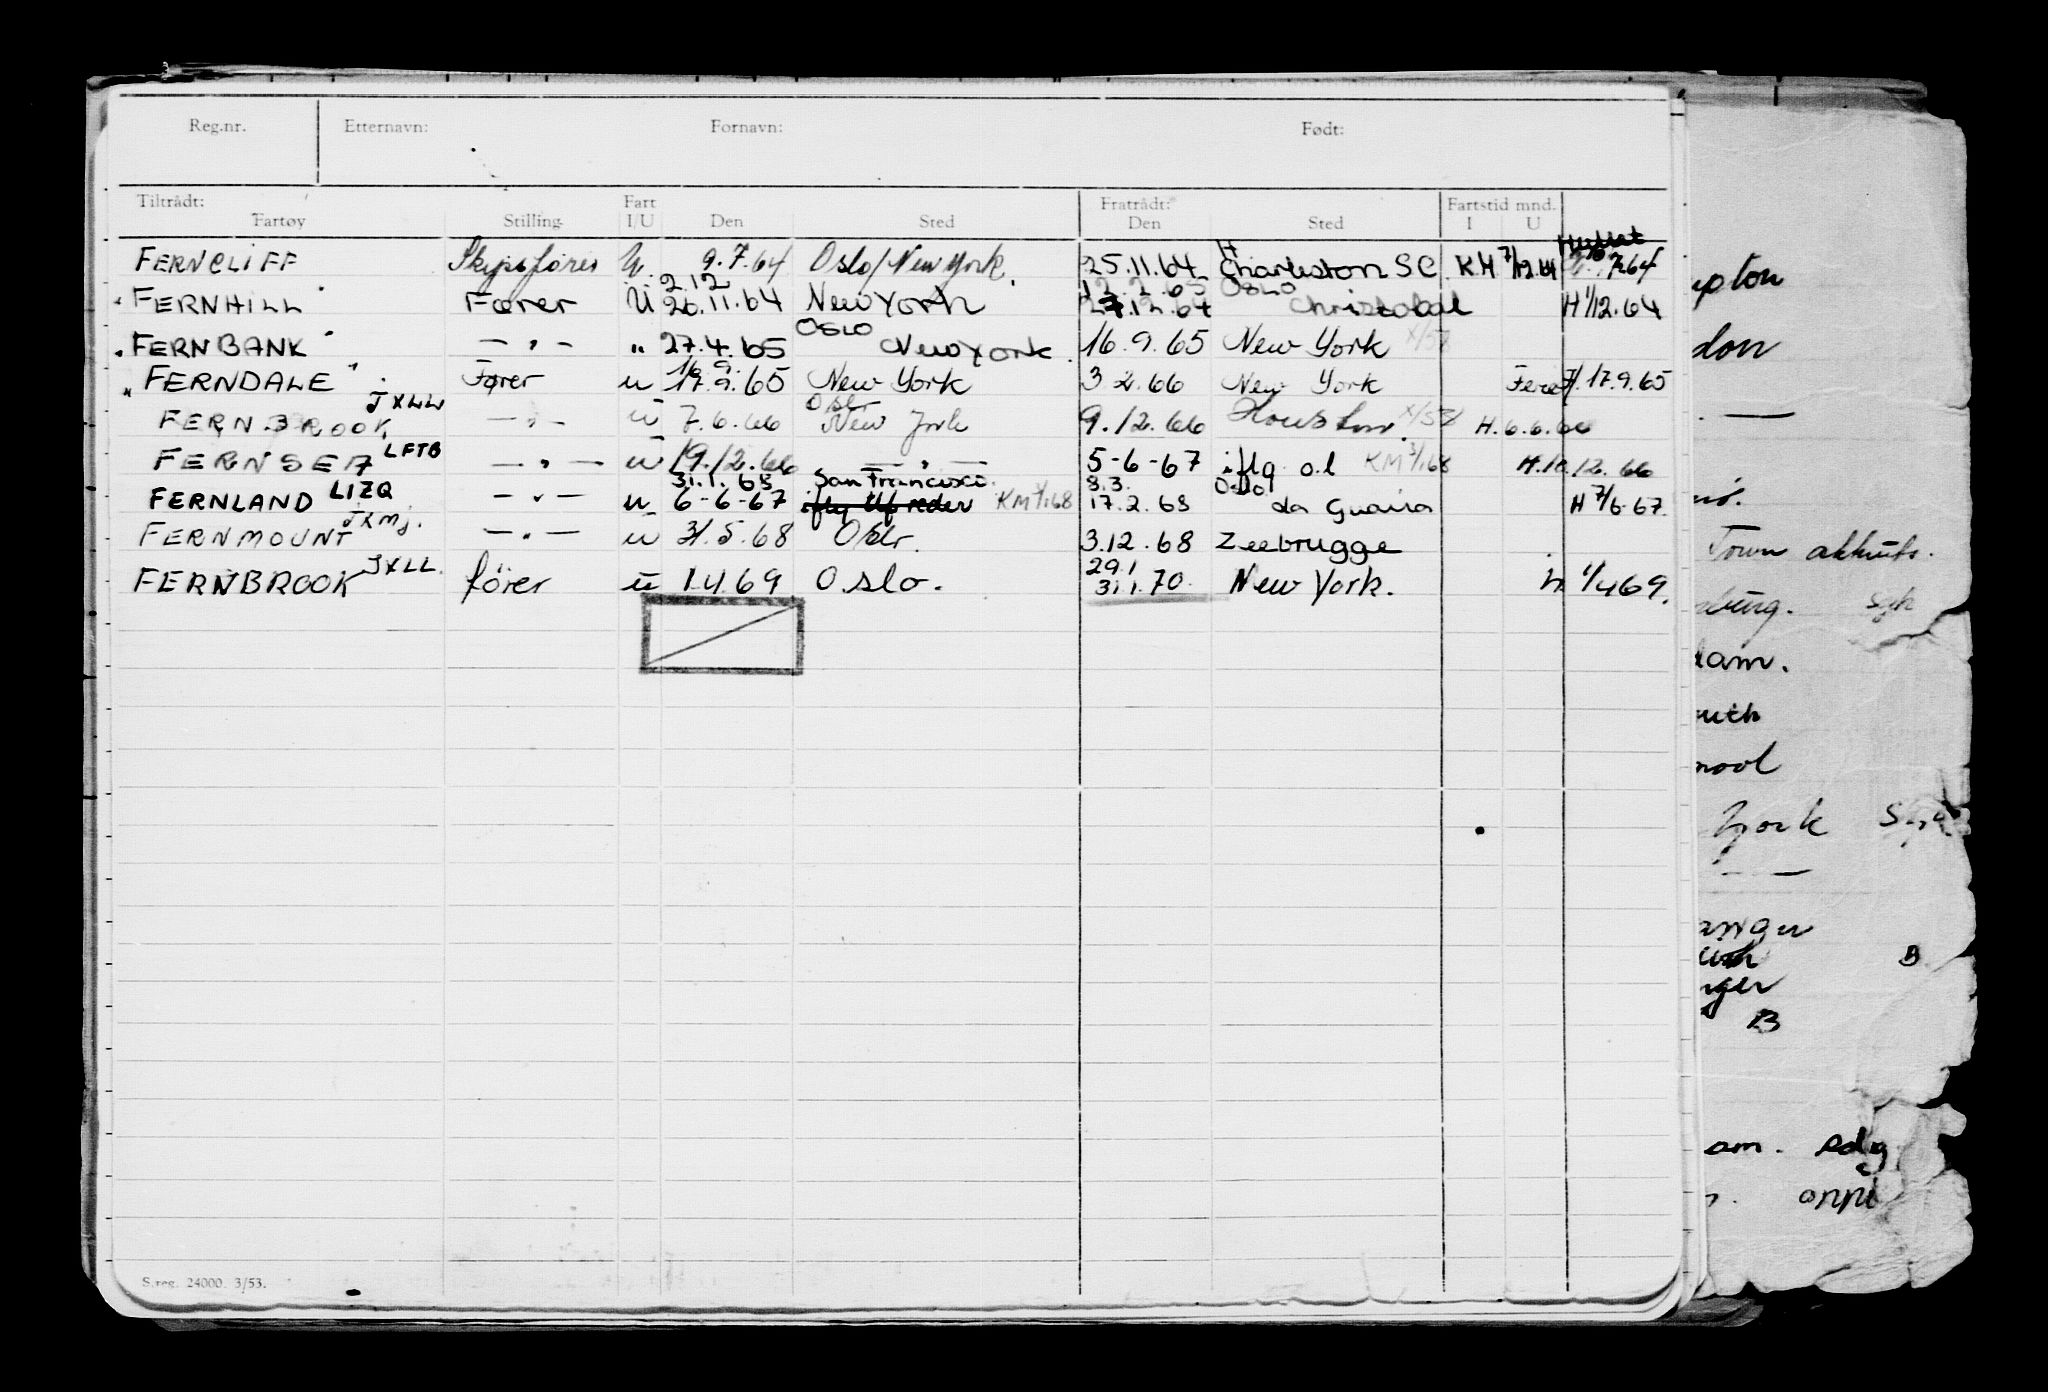 Reg.nr. Etternavn: Fornavn: Født:
Tiltrådt: Fart Fratrådt: Fartstid mnd.
Fartøy Stilling I/U Den Sted Den Sted I U
FERNCLIFF Skipsfører U. 9.7.64 Oslo/New York. 25.11.64 Charleston SC KM 7/12.64 7.64
2.12 12.2.65 OSLO
"FERNHILL" Fører U 20.11.64 New York 27.12.64 Christobal H 1/12.64
OSLO
"FERNBANK" — " — " 27.4.65 New York. 16.9.65 New York X/58
16.9.
"FERNDALE". Fører u 17.9.65 New York 3 2.66 New York 17.9.65
JXLL Oslo
FERNBROOK — " — u 7.6.66 New York 9.12.66 Houston. X/58 H.6.6.66
FERNSEA LFTB — " — u 19.12.66 — " — 5-6-67 iflg o.l KM 1/1.68 H.10.12.66
31.1.68 San Francisco. 8.3. Oslo
FERNLAND LIZQ — " — u 6-6-67 iflg Uf reder KM 1/1.68 17.2.68 da Guaira H 7/6-67.
FERNMOUNT JXMJ. — " — u 31.5.68 Oslo. 3.12.68 Zeebrugge
29.1
FERNBROOK JXLL. fører u 1.4.69 Oslo. 31.1.70. New York. h 1/4 69.
S.reg. 24000. 3/53.
pton
don
—
Town akkuts.
burg.
dam.
outh
mool
York
anger
B
nger
B
am.